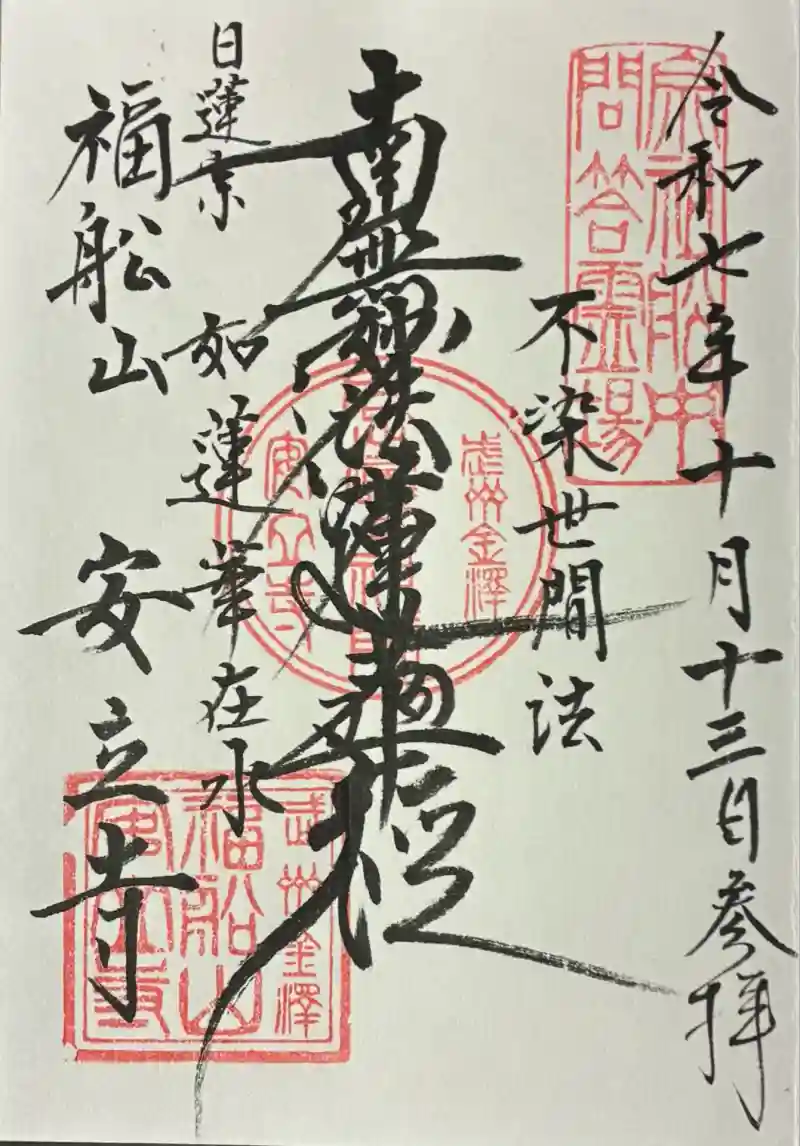 令和七年十月十三日参拝
宗祖船中
問答霊場
不染世間法
南無妙法蓮華経
武州金澤
安立寺
如蓮華在水
日蓮宗
福船山 安立寺
武州金澤
福船山
安立寺